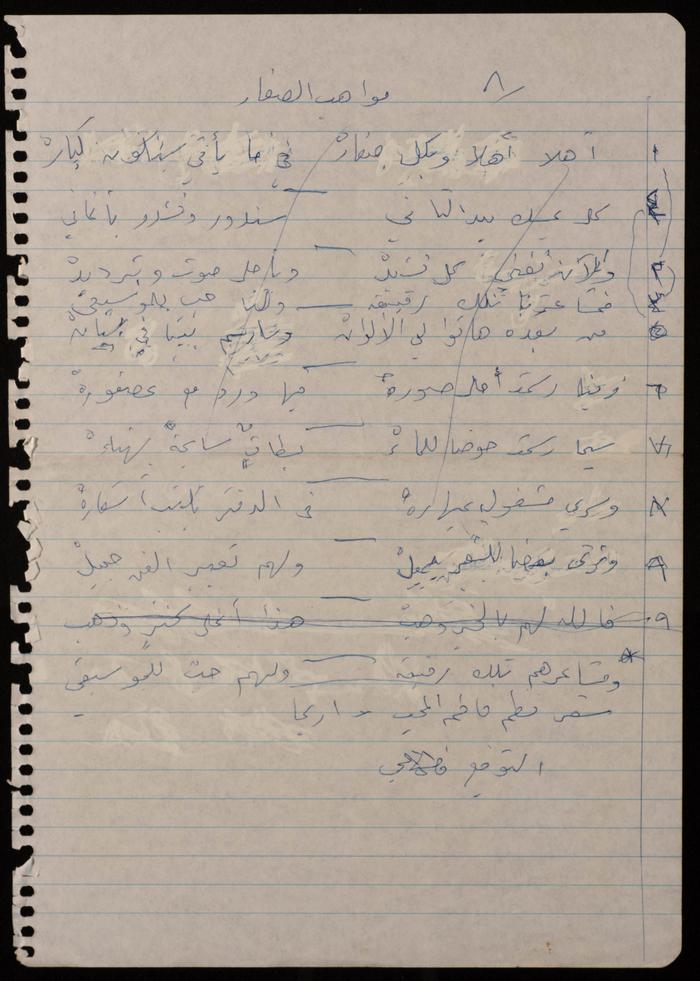 ٨/ مواهب الصغار
١ أهلا أهلا وبكل صغار في ما يأتي سنكون كبار
كل يمسك بيد الثاني سندور ونشدو بأغاني
والآن نغني كل نشيد وبأحلى صوت وترديد
فمشاعرنا تلك رقيقة ولنا حب للموسيقى
٥ من بعده هاتوا لي الألوان ونرسم بيتا في
٦ رسمت أحلى صورة فيها ورد مع عصفورة
٧ سيما رسمت حوضا للماء بطات سابحة
٨ مشغول في الدفتر يكتب أشعاره
٩ وترى بعضا للشعر يميل ولهم تعبير الفن جميل
فالله لهم بالخير وهب هذا أغلى كنز وذهب
* ومشاعرهم تلك رقيقة ولهم حب للموسيقى
شعر نظم فاطم المحب
التوقيع